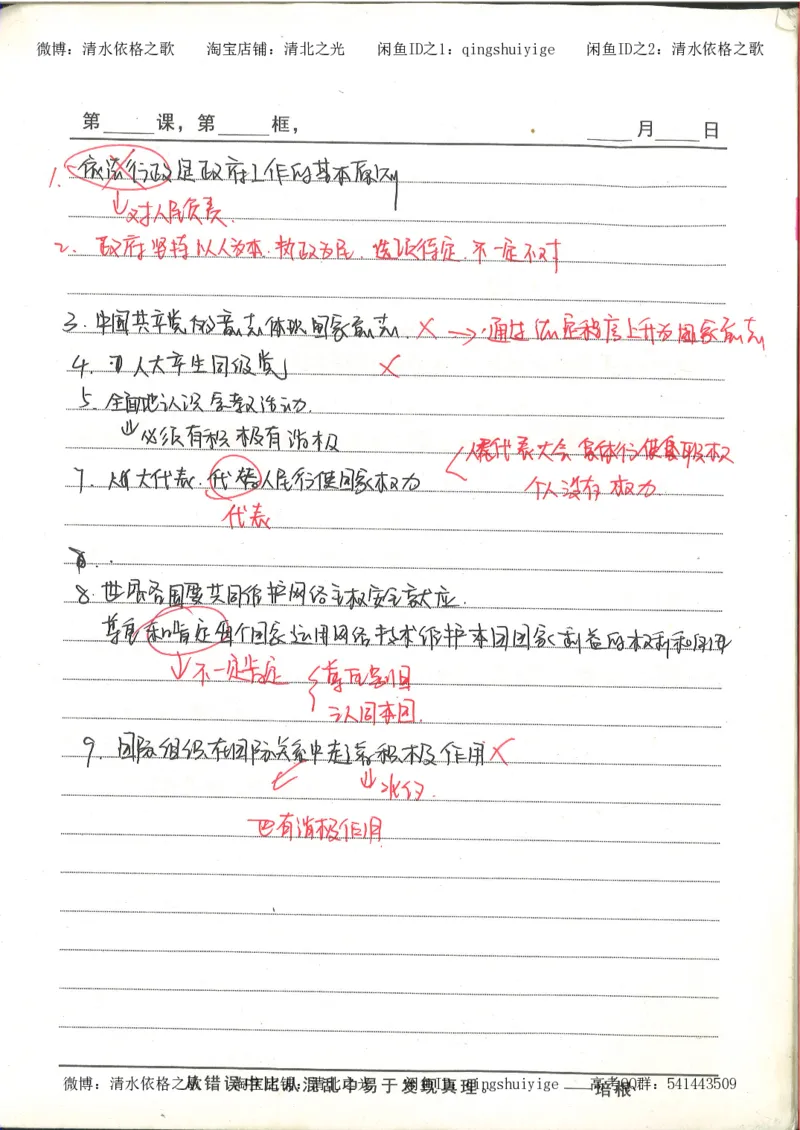 微博：清水依格之歌 淘宝店铺：清北之光 闲鱼ID之1：qingshuiyige 闲鱼ID之2：清水依格之歌
第 课，第 框， 月 日
1. 依法行政是政府工作的基本原则
↓对人民负责.
2. 政府坚持以人为本.执政为民. 选项待定.不一定不对
3. 中国共产党的意志体现国家意志. × → 通过法定程序上升为国家意志
4. 人大产生同级党 ×
5. 全面地认识宗教活动.
↓必须有积极有消极
人民代表大会 集体行使职权
7. 人大代表.代替人民行使国家权力
个人没有权力.
代表
8. 世界各国要共同维护网络主权安全
尊重和肯定每个国家运用网络技术维护本国国家利益的权利和
↓不一定肯定 尊重别国
认同本国.
9. 国际组织在国际关系中起着积极作用 ×
也有消极作用
微博：清水依格之歌 淘宝店铺：清北之光 闲鱼ID qingshuiyige 高考QQ群：541443509
从错误中比从混乱中易于发现真理。 ——培根